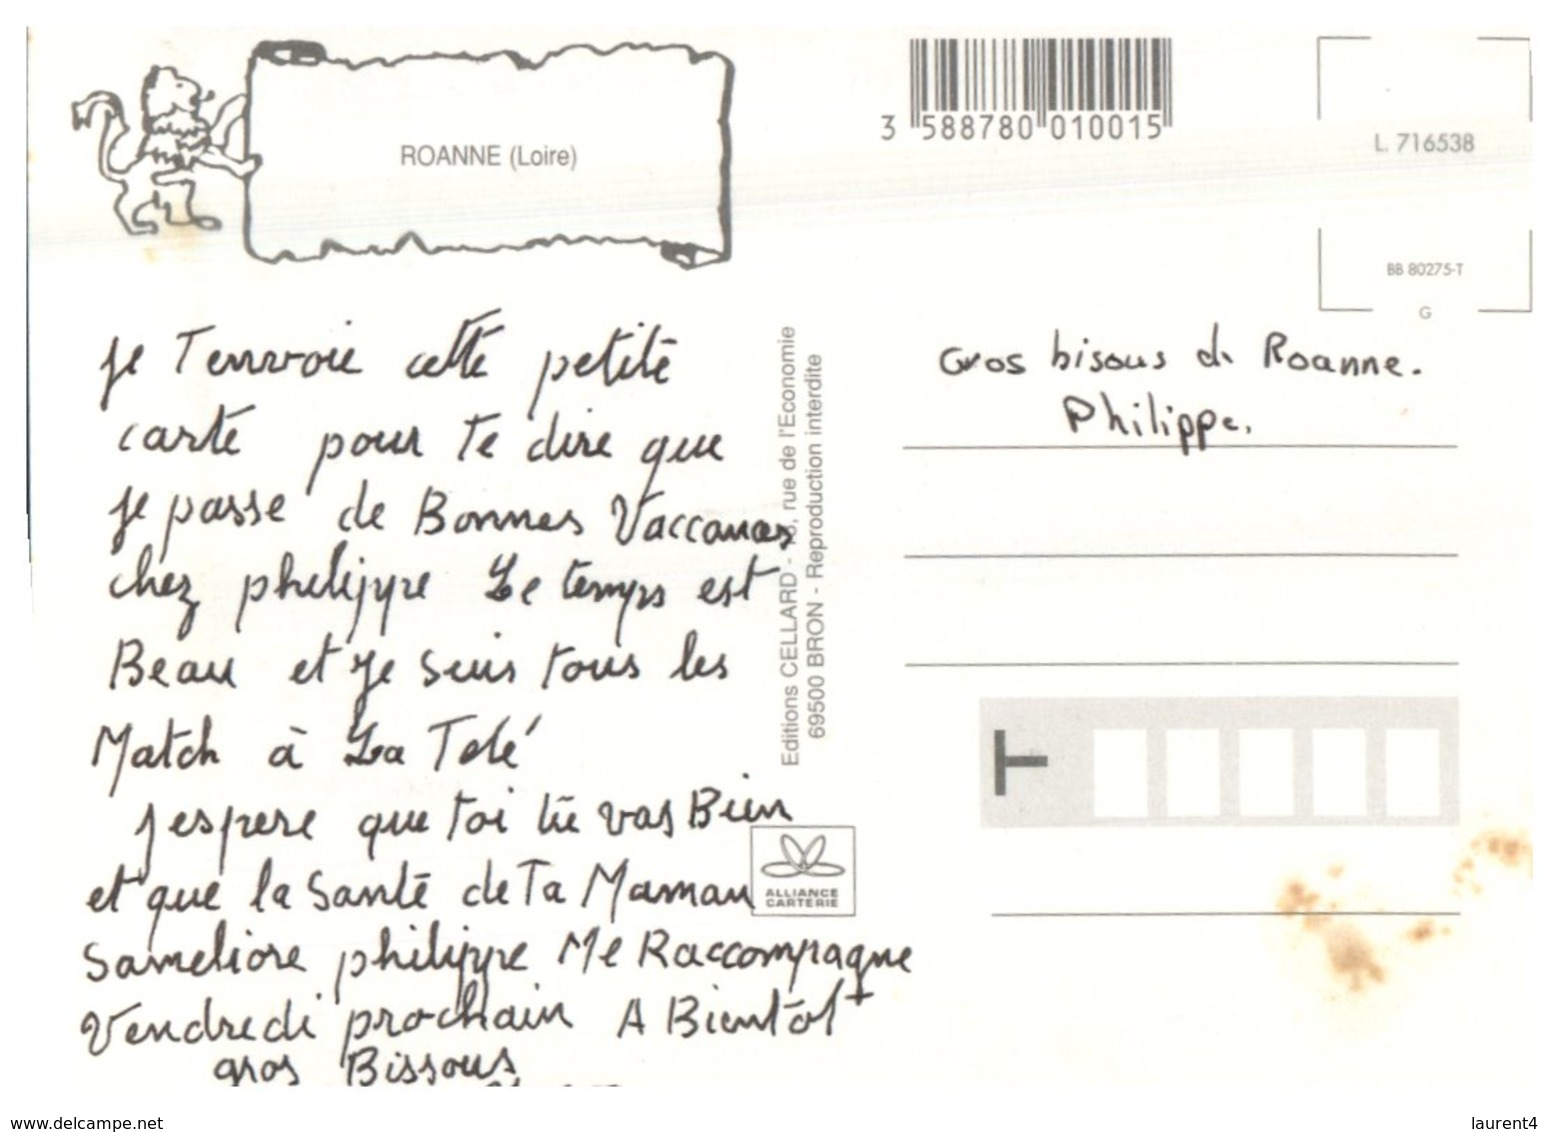 ROANNE (Loire)
3 588780 010015
L. 716538
BB 80275-T
G
je Tenvoie cette petite
carte pour te dire que
je passe de Bonnes Vaccances
chez philippe Le temps est
Beau et je suis tous les
Match à La Télé
Jespere que toi tu vas Bien
et que la santé de Ta Maman
sameliore philippe Me Raccompagne
Vendredi prochain A Bientôt
gros Bissous
Editions CELLARD - rue de l'Economie
69500 BRON - Reproduction interdite
ALLIANCE
CARTERIE
Gros bisous de Roanne.
Philippe.
T
www.delcampe.net
laurent4